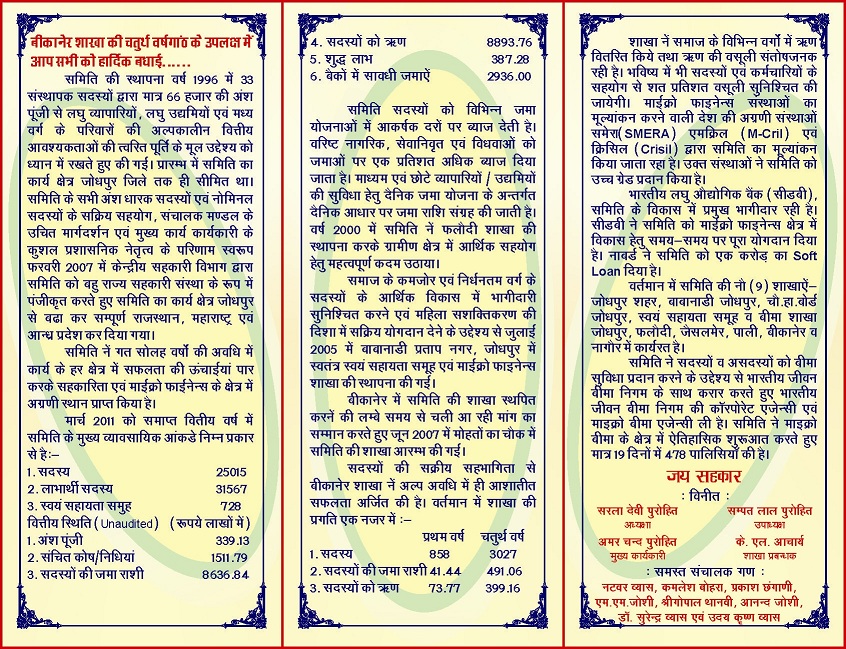 बीकानेर शाखा की चतुर्थ वर्षगांठ के उपलक्ष में
आप सभी को हार्दिक बधाई......
समिति की स्थापना वर्ष 1996 में 33
संस्थापक सदस्यों द्वारा मात्र 66 हजार की अंश
पूंजी से लघु व्यापारियों, लघु उद्यमियों एवं मध्य
वर्ग के परिवारों की अल्पकालीन वित्तीय
आवश्यकताओं की त्वरित पूर्ति के मूल उद्देश्य को
ध्यान में रखते हुए की गई। प्रारम्भ में समिति का
कार्य क्षेत्र जोधपुर जिले तक ही सीमित था।
समिति के सभी अंश धारक सदस्यों एवं नोमिनल
सदस्यों के सक्रिय सहयोग, संचालक मण्डल के
उचित मार्गदर्शन एवं मुख्य कार्य कार्यकारी के
कुशल प्रशासनिक नेतृत्व के परिणाम स्वरूप
फरवरी 2007 में केन्द्रीय सहकारी विभाग द्वारा
समिति को बहु राज्य सहकारी संस्था के रूप में
पंजीकृत करते हुए समिति का कार्य क्षेत्र जोधपुर
से बढा कर सम्पूर्ण राजस्थान, महाराष्ट्र एवं
आन्ध्र प्रदेश कर दिया गया।
समिति नें गत सोलह वर्षो की अवधि में
कार्य के हर क्षेत्र में सफलता की ऊंचाईयां पार
करके सहकारिता एवं माईक्रो फाईनेन्स के क्षेत्र में
अग्रणी स्थान प्राप्त किया है।
मार्च 2011 को समाप्त वितीय वर्ष में
समिति के मुख्य व्यावसायिक आंकडे निम्न प्रकार
से है:–
1. सदस्य 25015
2. लाभार्थी सदस्य 31567
3. स्वयं सहायता समुह 728
वित्तीय स्थिति (Unaudited) (रूपये लाखों में)
1. अंश पूंजी 339.13
2. संचित कोष/निधियां 1511.79
3. सदस्यों की जमा राशी 8636.84
4. सदस्यों को ऋण 8893.76
5. शुद्ध लाभ 387.28
6. बैकों में सावधी जमाऐं 2936.00
समिति सदस्यों को विभिन्न जमा
योजनाओं में आकर्षक दरों पर ब्याज देती है।
वरिष्ट नागरिक, सेवानिवृत एवं विधवाओं को
जमाओं पर एक प्रतिशत अधिक ब्याज दिया
जाता है। माध्यम एवं छोटे व्यापारियों / उद्यमियों
की सुविधा हेतु दैनिक जमा योजना के अन्तर्गत
दैनिक आधार पर जमा राशि संग्रह की जाती है।
वर्ष 2000 में समिति नें फलौदी शाखा की
स्थापना करके ग्रामीण क्षेत्र में आर्थिक सहयोग
हेतु महत्वपूर्ण कदम उठाया।
समाज के कमजोर एवं निर्धनतम वर्ग के
सदस्यों के आर्थिक विकास में भागीदारी
सुनिश्चित करने एवं महिला सशक्तिकरण की
दिशा में सक्रिय योगदान देने के उद्देश्य से जुलाई
2005 में बाबानाडी प्रताप नगर, जोधपुर में
स्वतंत्र स्वयं सहायता समूह एवं माईक्रो फाइनेन्स
शाखा की स्थापना की गई।
बीकानेर में समिति की शाखा स्थपित
करनें की लम्बे समय से चली आ रही मांग का
सम्मान करते हुए जून 2007 में मोहतों का चौक में
समिति की शाखा आरम्भ की गई।
सदस्यों की सक्रीय सहभागिता से
बीकानेर शाखा नें अल्प अवधि में ही आशातीत
सफलता अर्जित की है। वर्तमान में शाखा की
प्रगति एक नजर में :–
प्रथम वर्ष चतुर्थ वर्ष
1. सदस्य 858 3027
2. सदस्यों की जमा राशी 41.44 491.06
3. सदस्यों को ऋण 73.77 399.16
शाखा नें समाज के विभिन्न वर्गो में ऋण
वितरित किये तथा ऋण की वसूली संतोषजनक
रही है। भविष्य में भी सदस्यों एवं कर्मचारियों के
सहयोग से शत प्रतिशत वसूली सुनिश्चित की
जायेगी। माईक्रो फाइनेन्स संस्थाओं का
मूल्यांकन करने वाली देश की अग्रणी संस्थाओं
समेरा(SMERA) एमक्रिल (M-Cril) एवं
क्रिसिल (Crisil) द्वारा समिति का मूल्यांकन
किया जाता रहा है। उक्त संस्थाओं ने समिति को
उच्च ग्रेड प्रदान किया है।
भारतीय लघु औद्योगिक बैंक (सीडबी),
समिति के विकास में प्रमुख भागीदार रही है।
सीडबी ने समिति को माईक्रो फाइनेन्स क्षेत्र में
विकास हेतु समय–समय पर पूरा योगदान दिया
है। नाबर्ड ने समिति को एक करोड़ का Soft
Loan दिया है।
वर्तमान में समिति की नौ (9) शाखाऐं–
जोधपुर शहर, बाबानाडी जोधपुर, चौ.हा.बोर्ड
जोधपुर, स्वयं सहायता समूह व बीमा शाखा
जोधपुर, फलौदी, जेसलमेर, पाली, बीकानेर व
नागौर में कार्यरत है।
समिति ने सदस्यों व असदस्यों को बीमा
सुविधा प्रदान करने के उद्देश्य से भारतीय जीवन
बीमा निगम के साथ करार करते हुए भारतीय
जीवन बीमा निगम की कॉरपोरेट एजेन्सी एवं
माइक्रो बीमा एजेन्सी ली है। समिति ने माइक्रो
बीमा के क्षेत्र में ऐतिहासिक शुरूआत करते हुए
मात्र 19 दिनों में 478 पालिसियाँ की है।
जय सहकार
: विनीत :
सरला देवी पुरोहित सम्पत लाल पुरोहित
अध्यक्षा उपाध्यक्ष
अमर चन्द पुरोहित के. एल. आचार्य
मुख्य कार्यकारी शाखा प्रबन्धक
: समस्त संचालक गण :
नटवर व्यास, कमलेश बोहरा, प्रकाश छंगाणी,
एम.एम.जोशी, श्रीगोपाल थानवी, आनन्द जोशी,
डॉ. सुरेन्द्र व्यास एवं उदय कृष्ण व्यास